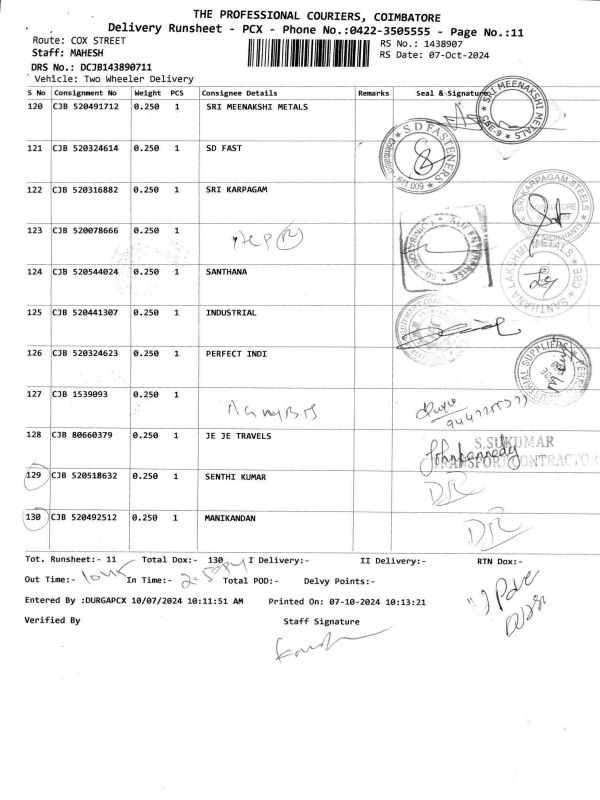 THE PROFESSIONAL COURIERS, COIMBATORE
Delivery Runsheet - PCX - Phone No.:0422-3505555 - Page No.:11
Route: COX STREET
RS No.: 1438907
Staff: MAHESH
RS Date: 07-Oct-2024
DRS No.: DCJB143890711
Vehicle: Two Wheeler Delivery
S No Consignment No Weight PCS Consignee Details Remarks Seal & Signature
120 CJB 520491712 0.250 1 SRI MEENAKSHI METALS
SRI MEENAKSHI METALS CBE-9
121 CJB 520324614 0.250 1 SD FAST
S D FASTENERS
122 CJB 520316882 0.250 1 SRI KARPAGAM
SRI KARPAGAM STEELS
123 CJB 520078666 0.250 1
124 CJB 520544024 0.250 1 SANTHANA
SANTHANA LAKSHMI METALS CBE
125 CJB 520441307 0.250 1 INDUSTRIAL
126 CJB 520324623 0.250 1 PERFECT INDI
127 CJB 1539093 0.250 1
128 CJB 80660379 0.250 1 JE JE TRAVELS
S.SUKUMAR
Johnkennedy
TRANSPORT CONTRACTOR
129 CJB 520518632 0.250 1 SENTHI KUMAR
DR
130 CJB 520492512 0.250 1 MANIKANDAN
DR
Tot. Runsheet:- 11 Total Dox:- 130 I Delivery:- II Delivery:- RTN Dox:-
Out Time:- In Time:- Total POD:- Delvy Points:-
Entered By :DURGAPCX 10/07/2024 10:11:51 AM Printed On: 07-10-2024 10:13:21
Verified By Staff Signature